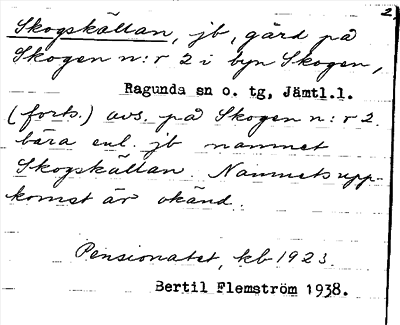 2.
Skogskällan, jb, gård på
Skogen n:r 2 i byn Skogen,
Ragunda sn o. tg, Jämtl.l.
(forts.) avs. på Skogen n:r 2.
bära enl. jb namnet
Skogskällan. Namnets upp-
komst är okänd.
Pensionatet, kb 1923.
Bertil Flemström 1938.